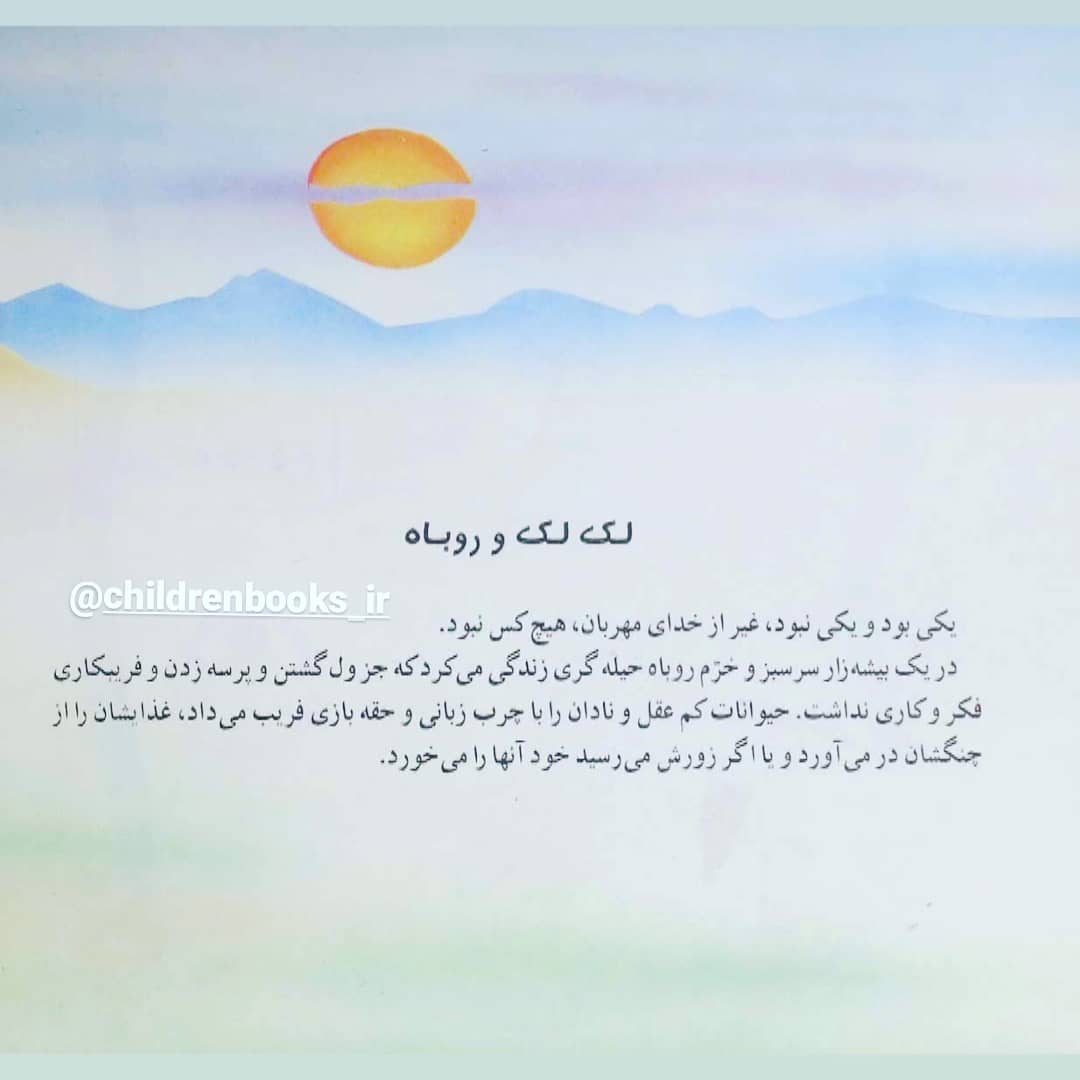 لک لک و روباه
@childrenbooks_ir
یکی بود و یکی نبود، غیر از خدای مهربان، هیچ کس نبود.
در یک بیشه‌زار سرسبز و خرّم روباه حیله گری زندگی می‌کرد که جز ول گشتن و پرسه زدن و فریبکاری
فکر و کاری نداشت. حیوانات کم عقل و نادان را با چرب زبانی و حقه بازی فریب می‌داد، غذایشان را از
چنگشان در می‌آورد و یا اگر زورش می‌رسید خود آنها را می‌خورد.